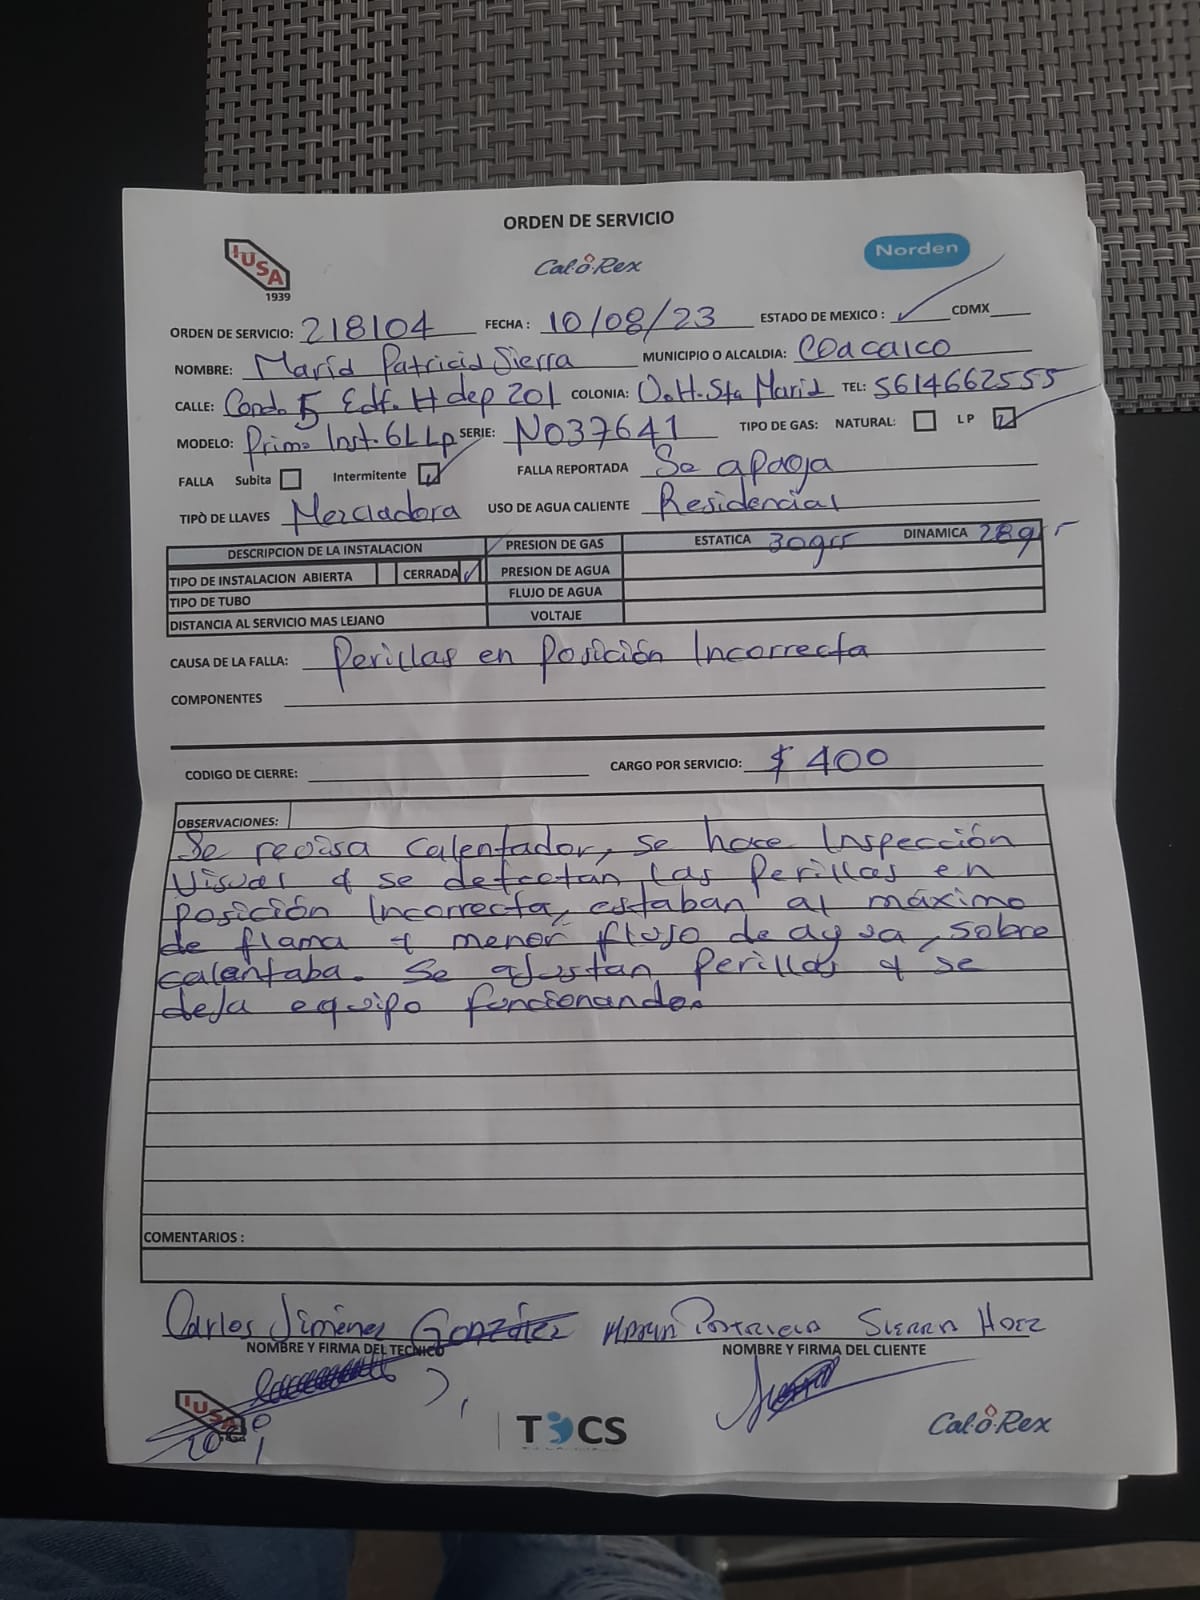 ORDEN DE SERVICIO
IUSA
1939
Cal-o-Rex
Norden
ORDEN DE SERVICIO: 218104 FECHA: 10/08/23 ESTADO DE MEXICO: ✓ CDMX
NOMBRE: Maria Patricia Sierra MUNICIPIO O ALCALDIA: Coacalco
CALLE: Cond. 5 Edf. H dep 201 COLONIA: U.H. Sta Maria TEL: 5614662555
MODELO: Prime Inst. 6L Lp SERIE: N037641 TIPO DE GAS: NATURAL: LP ✓
FALLA Subita Intermitente ✓ FALLA REPORTADA Se apaga
TIPÒ DE LLAVES Mezcladora USO DE AGUA CALIENTE Residencial
DESCRIPCION DE LA INSTALACION PRESION DE GAS ESTATICA 30gr DINAMICA 28gr
TIPO DE INSTALACION ABIERTA CERRADA ✓ PRESION DE AGUA
TIPO DE TUBO FLUJO DE AGUA
DISTANCIA AL SERVICIO MAS LEJANO VOLTAJE
CAUSA DE LA FALLA: Perillas en Posición Incorrecta
COMPONENTES
CODIGO DE CIERRE: CARGO POR SERVICIO: $ 400
OBSERVACIONES:
Se revisa calentador, se hace Inspección
Visual y se detectan las Perillas en
posición Incorrecta, estaban al máximo
de flama y menor flujo de agua, sobre
calentaba. Se ajustan perillas y se
deja equipo funcionando.
COMENTARIOS :
Carlos Jiménez González Maria Patricia Sierra
NOMBRE Y FIRMA DEL TECNICO NOMBRE Y FIRMA DEL CLIENTE
IUSA
TOCS
Cal-o-Rex